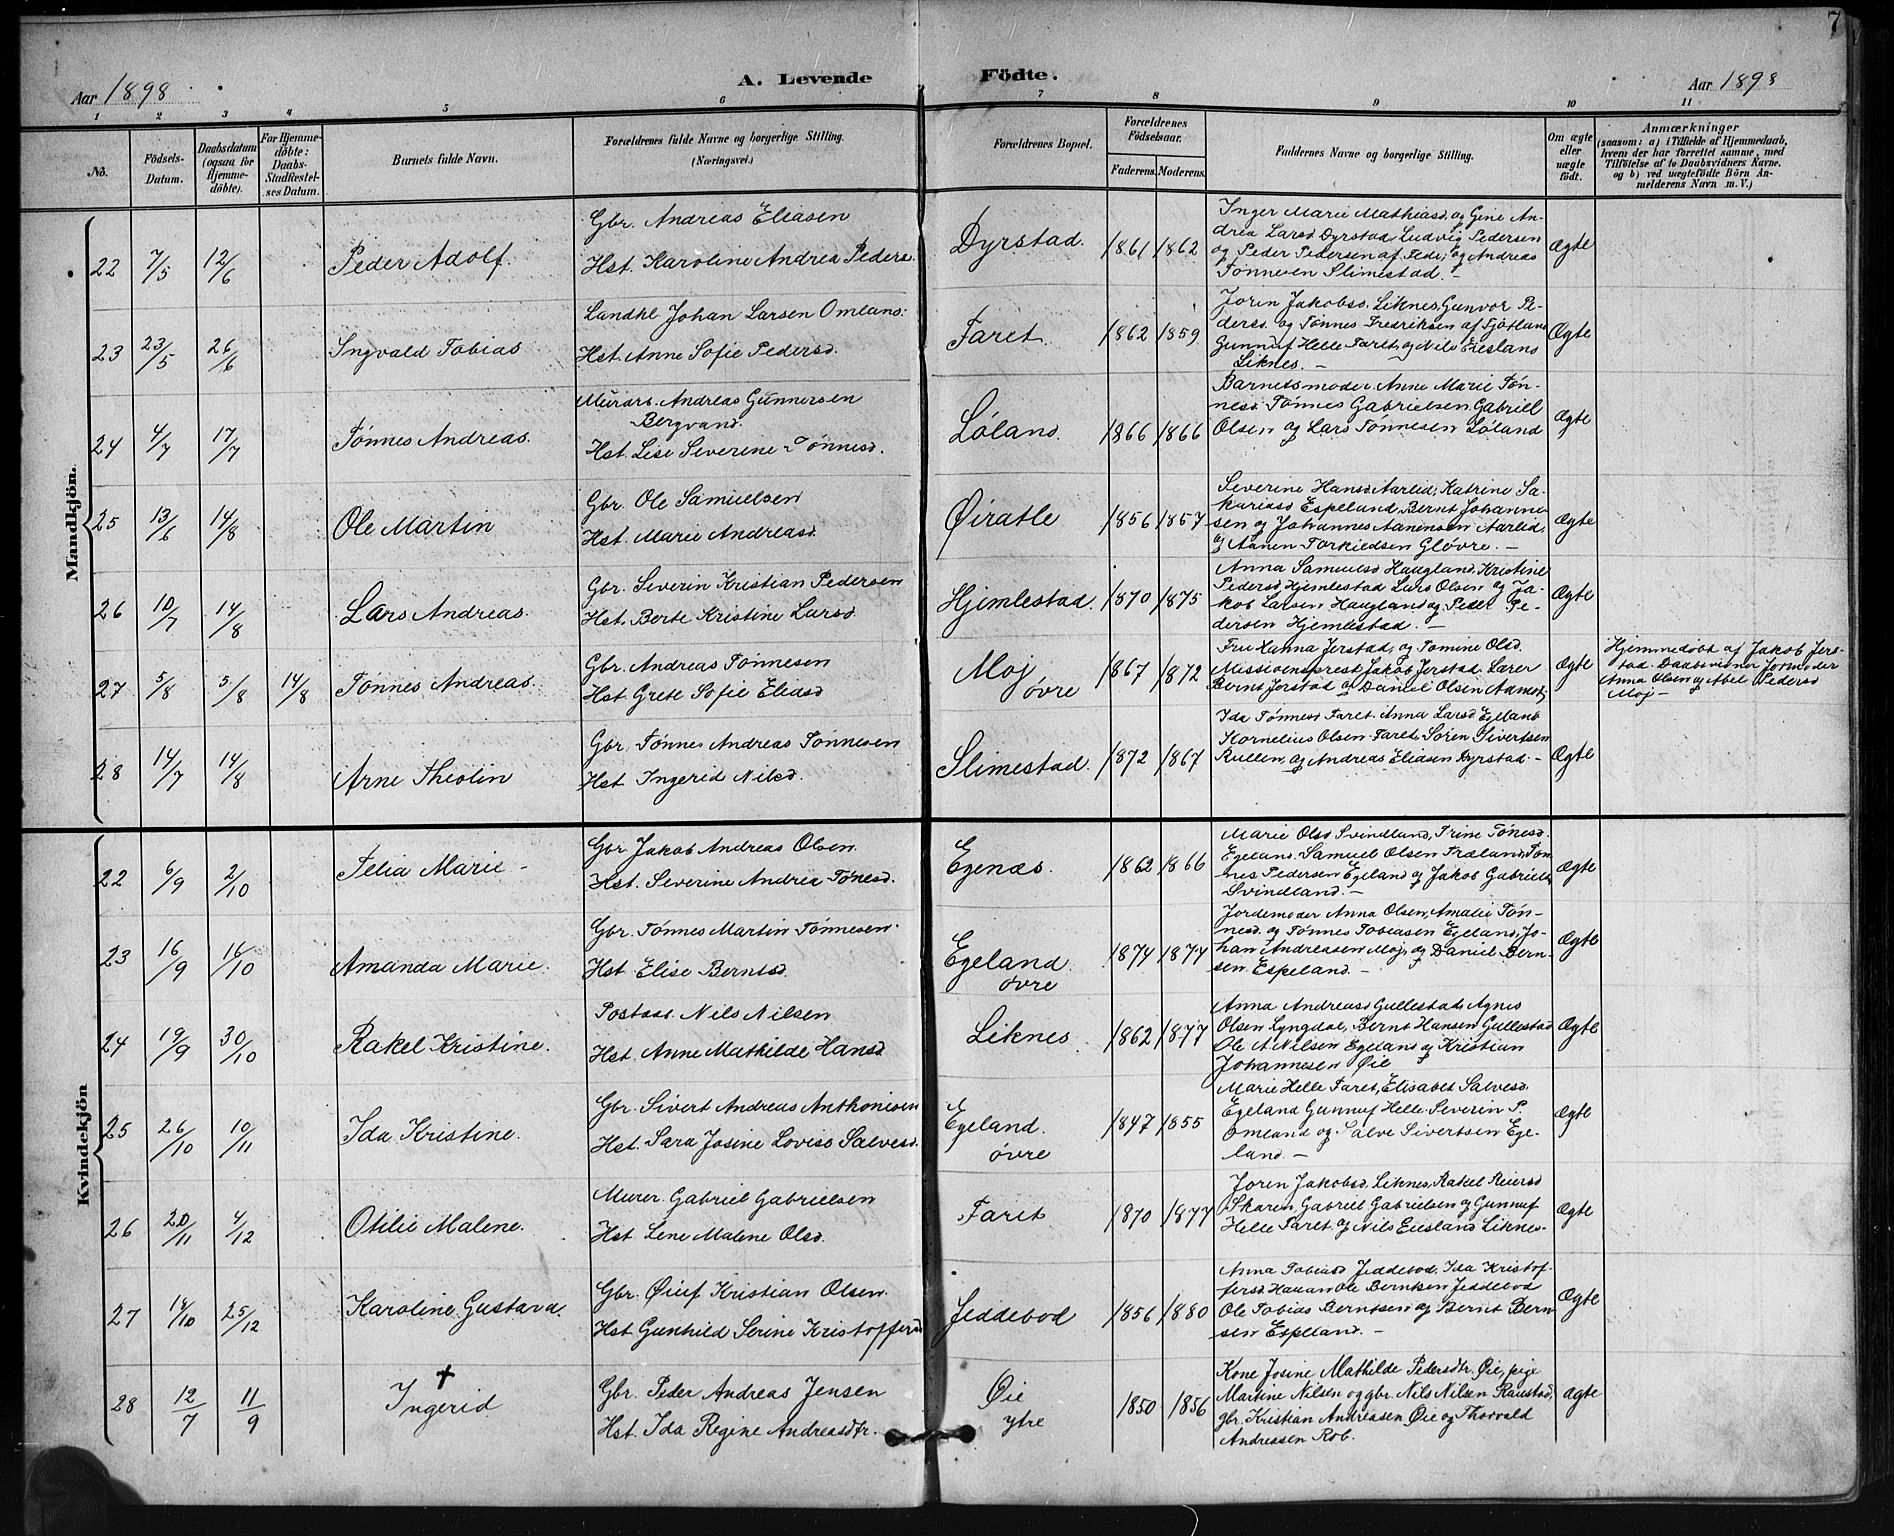 7
A. Levende Födte.
Aar 1898
Aar 1898
1 2 3 4 5 6 7 8 9 10 11
No.
Födsels-Datum.
Daabsdatum (ogsaa for Hjemme-döbte).
For Hjemme-döbte: Daabs-Stadfestel-ses Datum.
Barnets fulde Navn.
Forældrenes fulde Navne og borgerlige Stilling. (Næringsvei.)
Forældrenes Bopæl.
Forældrenes Födselsaar.
Faderens. Moderens.
Faddernes Navne og borgerlige Stilling.
Om ægte eller uægte födt.
Anmærkninger
(saasom: a) i Tilfælde af Hjemmedaab,
hvem der har forrettet samme, med
Tilföielse af to Daabsvidners Navne,
og b) ved uægtefödte Börn An-
melderens Navn m. V.)
Mandkjön.
22 7/5 12/6 Peder Adolf.
Gbr. Andreas Eliasen
Hst. Karoline Andrea Peders.
Dyrstad. 1861 1862
Inger Marie Mathiasd. og Gine An-
drea Larsd Dyrstad, Ludvig Pedersen
og Peder Pedersen af Fede, og Andreas
Tønnesen Slimestad. –
Ægte
23 23/5 26/6 Ingvald Tobias
Landhl. Johan Larsen Omland.
Hst. Anne Sofie Pedersd.
Faret. 1862 1859
Jorin Jakobsd. Liknes, Gunvor Pe-
dersd. og Tønnes Fredriksen af Fjotland
Gunnuf Helle Faret, og Nils Eiesland
Liknes. –
Ægte
24 4/7 17/7 Tønnes Andreas.
Murarb. Andreas Gunnersen
Bergvand.
Hst. Lise Severine Tønnesd.
Løland. 1866 1866
Barnets moder. Anne Marie Tøn-
nesd. Tønnes Gabrielsen, Gabriel
Olsen og Lars Tønnesen Løland
Ægte
25 13/6 14/8 Ole Martin
Gbr. Ole Samuelsen
Hst. Marie Andreasd.
Øiratle 1856 1857
Severine Hansd. Aarlid, Katrine Sa-
kariasd Espeland, Bernt Johanne-
sen og Johannes Aanensen Aarlid,
og Aanen Torkildsen Gløvre. –
Ægte
26 10/7 14/8 Lars Andreas.
Gbr. Severin Kristian Pedersen
Hst. Berte Kristine Larsd.
Hjemlestad. 1870 1875
Anna Samuelsd Haugland, Kristine
Pedersd Hjemlestad Lars Olsen og Ja-
kob Larsen Haugland og Peder Pe-
dersen Hjemlestad. –
Ægte
27 5/8 5/8 14/8 Tønnes Andreas.
Gbr. Andreas Tønnesen
Hst. Grete Sofie Eliasd
Moj øvre 1867 1872
Fru Hanna Jerstad, og Tomine Olsd.
Missionsprest Jakob Jerstad. Lærer
Bernt Jerstad og Daniel Olsen Aamot,
Ægte
Hjemmedøbt af Jakob Jers-
tad. Daabsvidner Jormoder
Anna Olsen og Abel Pedersd
Moj –
28 14/7 14/8 Arne Theolin
Gbr. Tønnes Andreas Tønnesen
Hst. Ingerid Nilsd.
Slimestad. 1872 1867
Ida Tønnesd Faret. Anna Larsd Egeland
Kornelius Olsen Faret, Søren Sivertsen
Rullen, og Andreas Eliasen Dyrstad. –
Ægte
Kvindekjön
22 6/9 2/10 Telia Marie –
Gbr Jakob Andreas Olsen.
Hst. Severine Andrea Tønesd.
Egenæs. 1862 1866
Marie Olsd Svindland, Trine Tønesd.
Egeland. Samuel Olsen Træland, Tøn-
nes Pedersen Egeland og Jakob Gabrielsen
Svindland. –
Ægte
23 16/9 16/10 Amanda Marie.
Gbr. Tønnes Martin Tønnesen
Hst. Elise Berntsd.
Egeland. øvre 1874 1874
Jordemoder Anna Olsen, Amalie Tøn-
nesd. og Tønnes Tobiasen Egeland, Jo-
han Andreasen Moj, og Daniel Bern-
sen Espeland. –
Ægte
24 19/9 30/10 Rakel Kristine.
Postaab. Nils Nilsen
Hst. Anne Mathilde Hansd
Liknes. 1862 1877
Anna Andreasd Gullestad, Agnes
Olsen Lyngdal, Bernt Hansen Gullestad
Ole A. Nilsen Egeland og Kristian
Johannesen Øie
Ægte
25 26/10 10/11 Ida Kristine.
Gbr. Sivert Andreas Anthonisen
Hst. Sara Josine Lovise Salvesd.
Egeland. øvre 1847 1855
Marie Helle Faret, Elisabet Salvesd.
Egeland Gunnuf Helle Severin P.
Omland og Salve Sivertsen Ege-
land. –
Ægte
26 20/11 4/12 Otilie Malene.
Murer. Gabriel Gabrielsen
Hst. Lene Malene Olsd.
Faret 1870 1877
Jorin Jakobsd, Liknes, Rakel Reiersd
Skaren, Gabriel Gabrielsen og Gunnuf
Helle Faret. og Nils Eiesland Liknes.
Ægte
27 14/10 25/12 Karoline Gustava.
Gbr. Øiuf Kristian Olsen.
Hst Gunhild Serine Kristoffersd
Jeddebod 1856 1880
Anna Tobiasd Jeddebod, Ida Kristof-
fersd. Hauan Ole Berntsen Jeddebod
Ole Tobias Berntsen og Bernt Bern-
sen Espeland. –
Ægte
28 12/7 11/9 ✝ Ingerid
Gbr. Peder Andreas Jensen
Hst. Ida Regine Andreasdtr.
Øie ytre 1850 1856
Kone Josine Mathilde Pedersdtr. Øie, pige
Martine Nilsen og gbr. Nils Nilsen Raustad,
gbr. Kristian Andreasen Øie og Thorvald
Andreassen Rob.
ægte